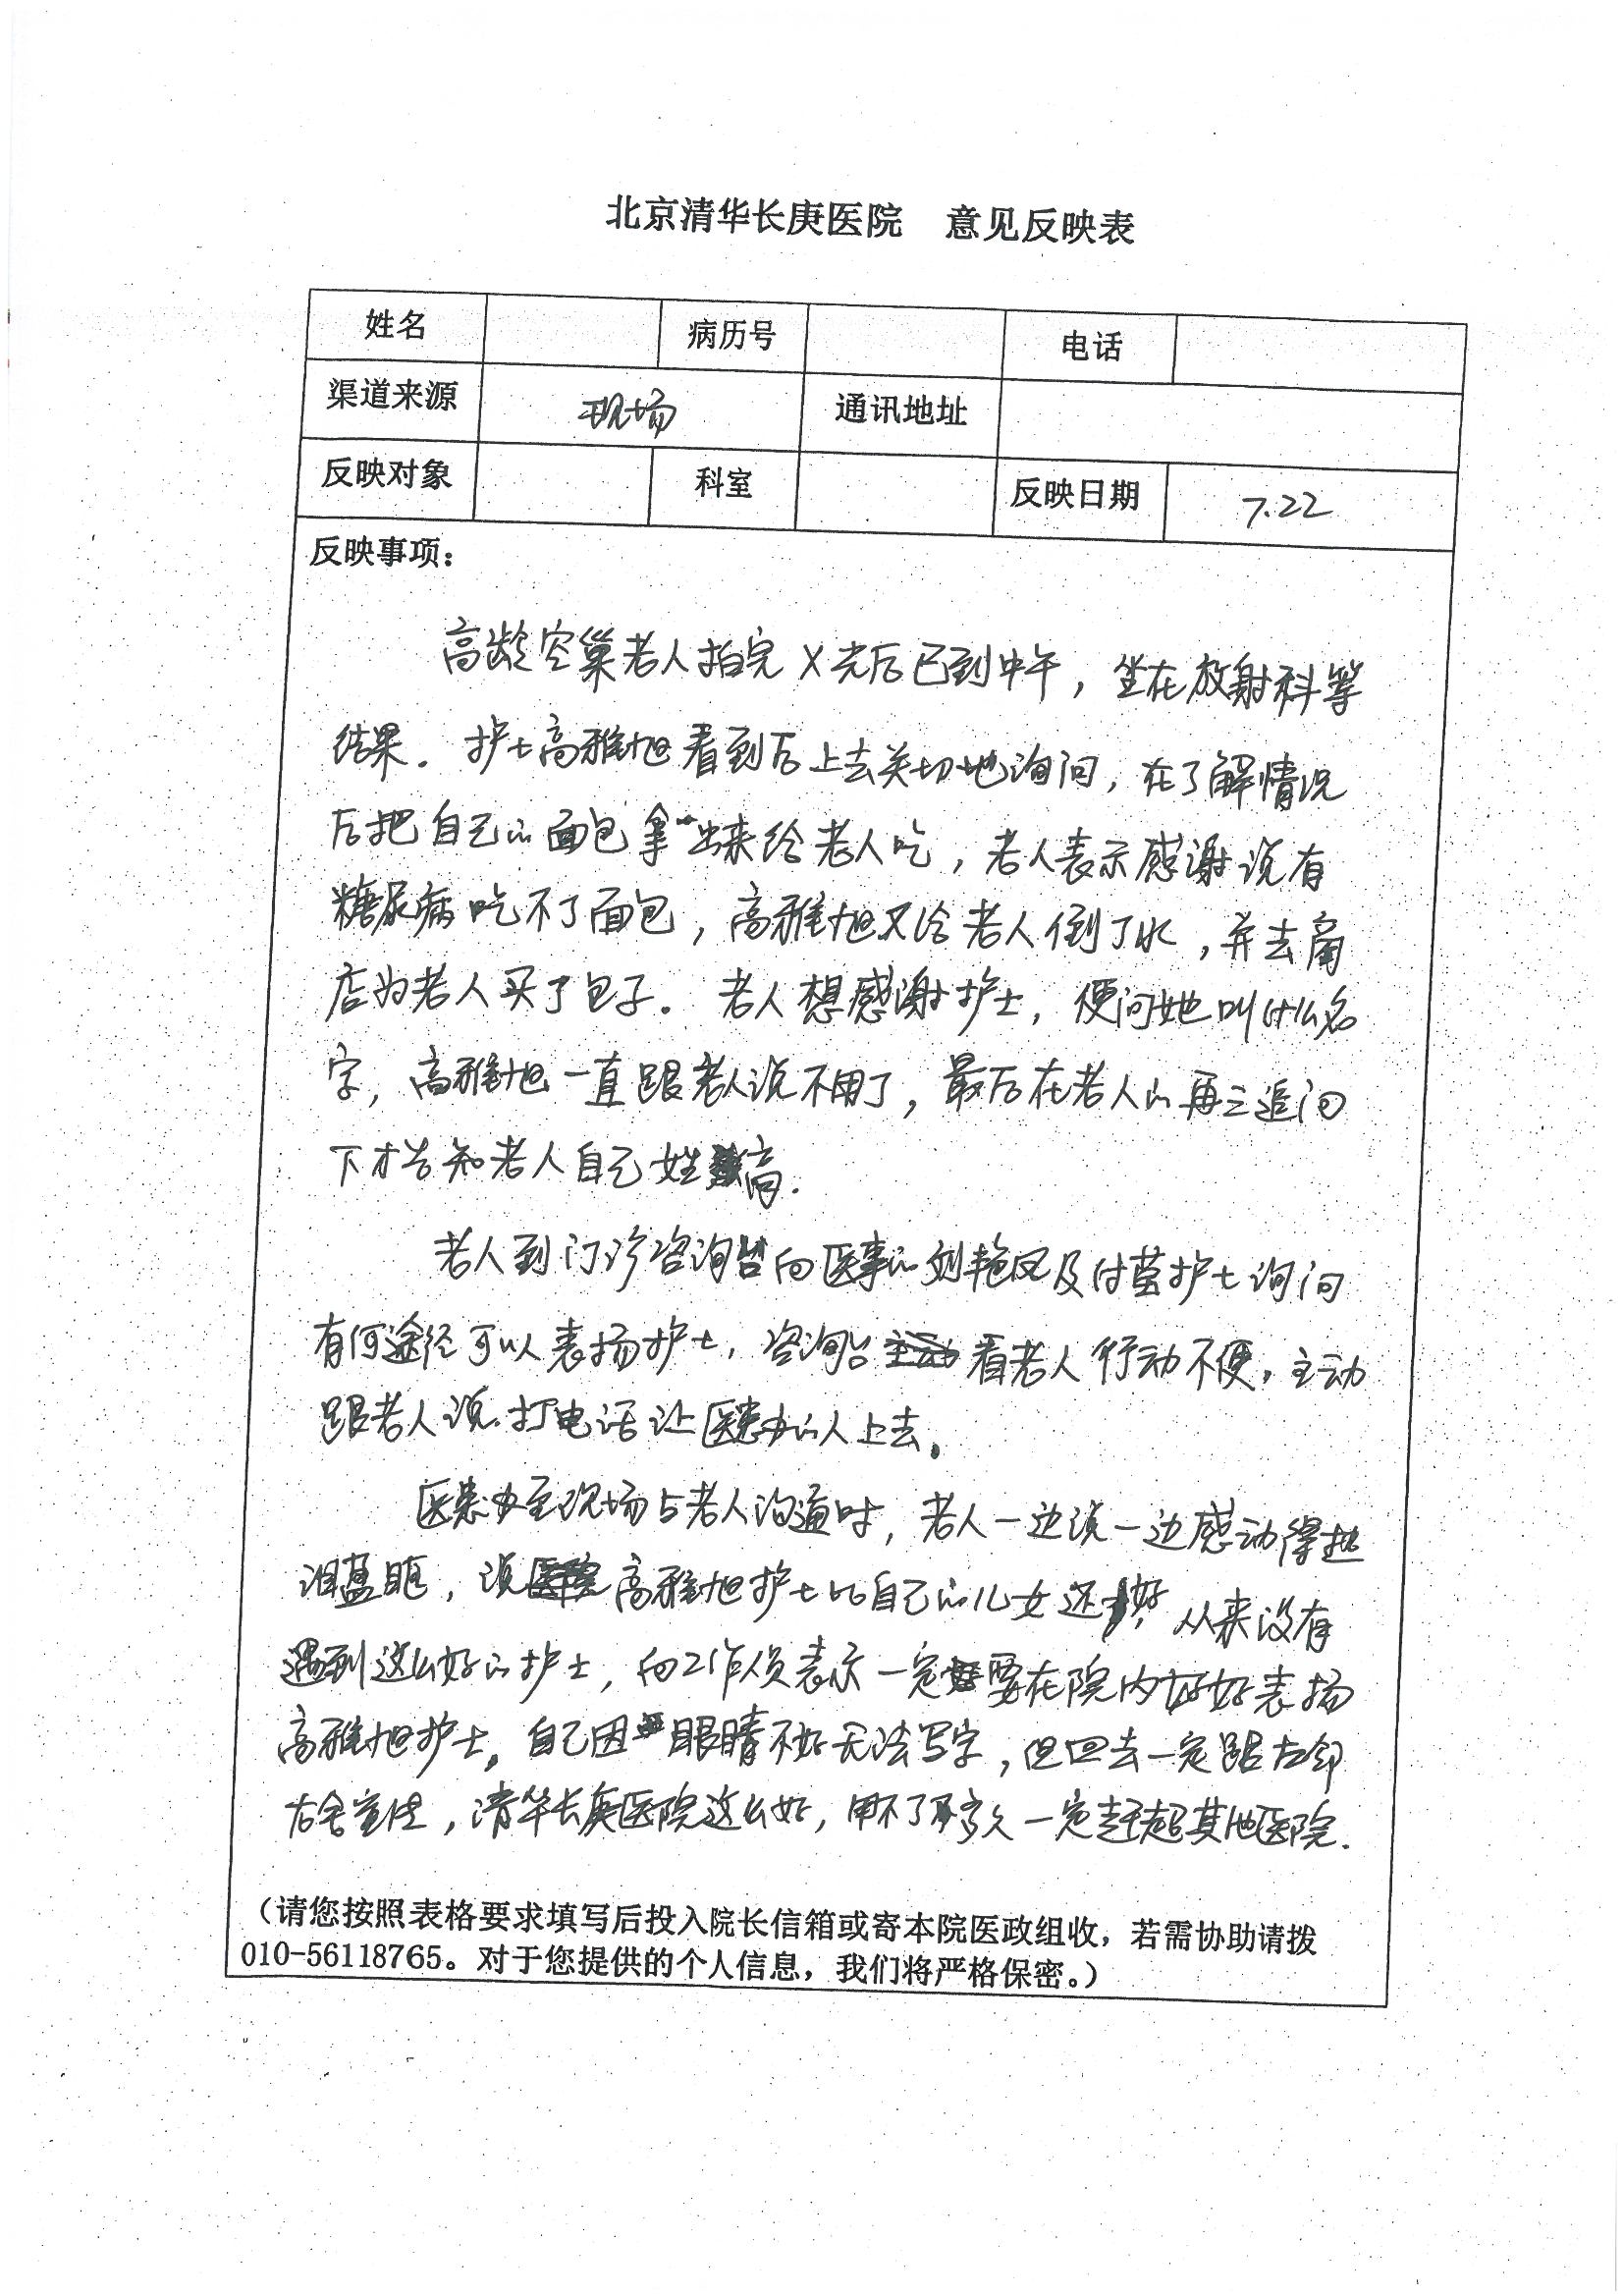 北京清华长庚医院 意见反映表
姓名 病历号 电话
渠道来源 现场 通讯地址
反映对象 科室 反映日期 7.22
反映事项：
高龄空巢老人拍完X光后已到中午，坐在放射科等
结果。护士高雅旭看到后上去关切地询问，在了解情况
后把自己的面包拿出来给老人吃，老人表示感谢说有
糖尿病吃不了面包，高雅旭又给老人倒了水，并去商
店为老人买了包子。老人想感谢护士，便问她叫什么名
字，高雅旭一直跟老人说不用了，最后在老人的再三追问
下才告知老人自己姓高.
老人到门诊咨询台向医事的刘艳凤及付莹护士询问
有何途径可以表扬护士，咨询台看老人行动不便，主动
跟老人说打电话让医患办的人上去。
医患办至现场与老人沟通时，老人一边说一边感动得热
泪盈眶，说高雅旭护士比自己的儿女还好，从来没有
遇到这么好的护士，向工作人员表示一定要在院内好好表扬
高雅旭护士。自己因眼睛不好无法写字，但回去一定跟左邻
右舍宣传，清华长庚医院这么好，用不了多久一定赶超其他医院.
（请您按照表格要求填写后投入院长信箱或寄本院医政组收，若需协助请拨
010-56118765。对于您提供的个人信息，我们将严格保密。）